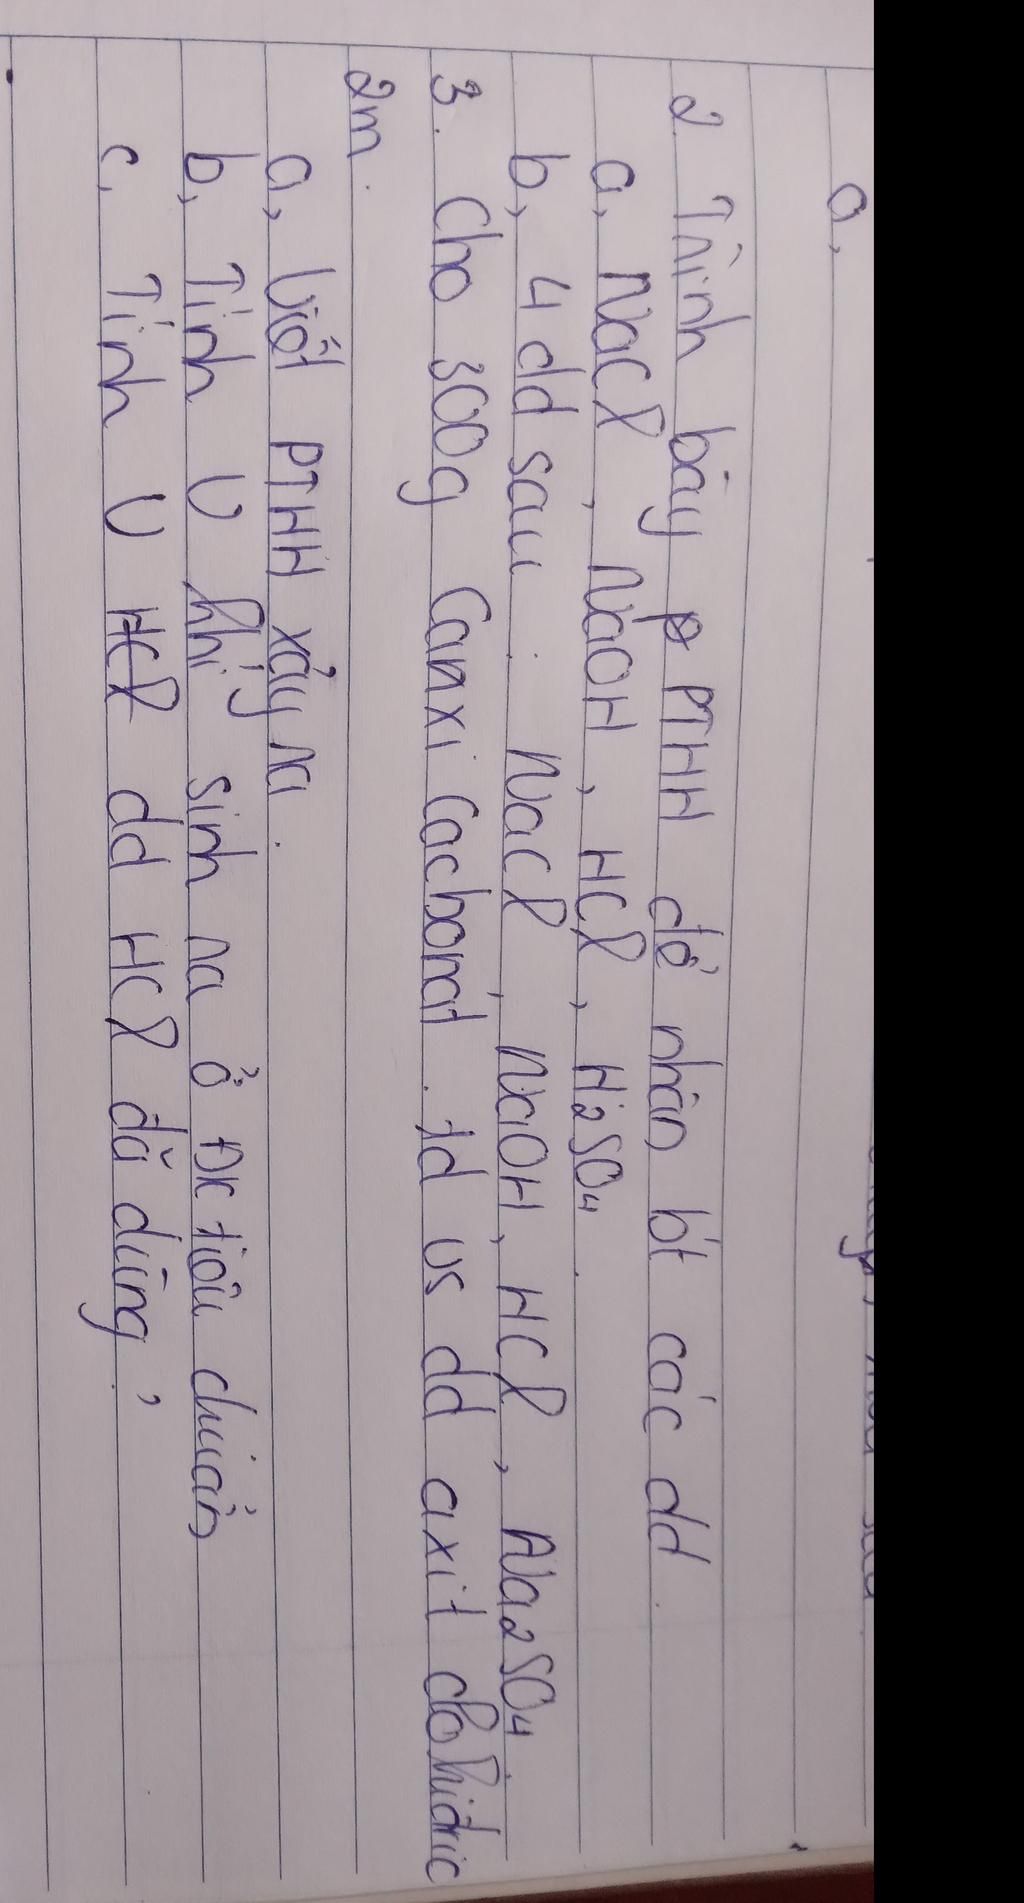 a,
2 Trình bày PTHH để nhận bt các dd
a, NaCl, NaOH, HCl, H2SO4.
b, 4 dd sau: NaCl, NaOH, HCl, Na2SO4.
3. Cho 300g Canxi Cacbonat. td vs dd axit clohidric
2m.
a, Viết PTHH xảy ra.
b, Tính V khí sinh ra ở Đk tiêu chuẩn
c, Tính V HCl dd HCl đã dùng,